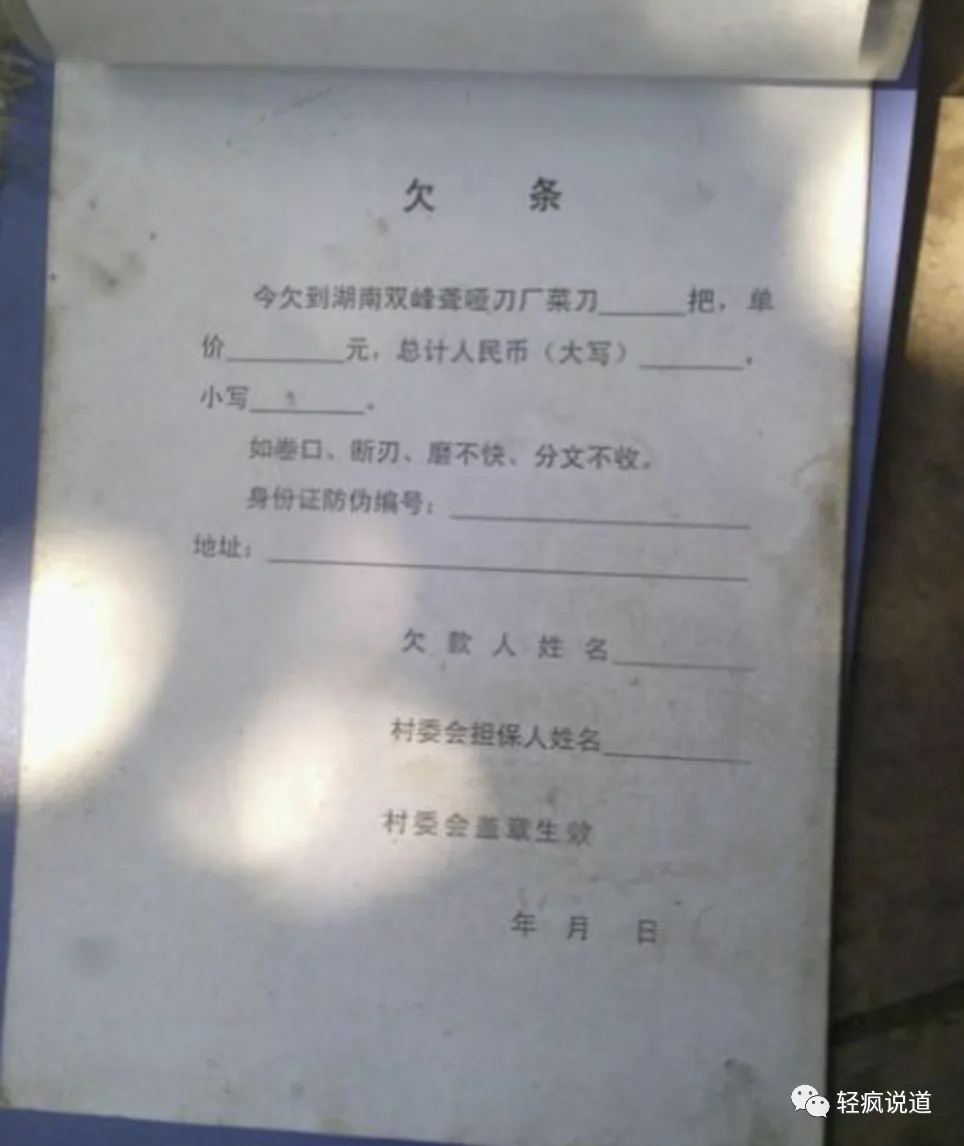 欠 条
今欠到湖南双峰聋哑刀厂菜刀______把，单
价________元，总计人民币（大写）_______，
小写________。
如卷口、断刃、磨不快、分文不收。
身份证防伪编号：____________________
地址：________________________________
欠 款 人 姓 名__________
村委会担保人姓名__________
村委会盖章生效
年 月 日
轻疯说道